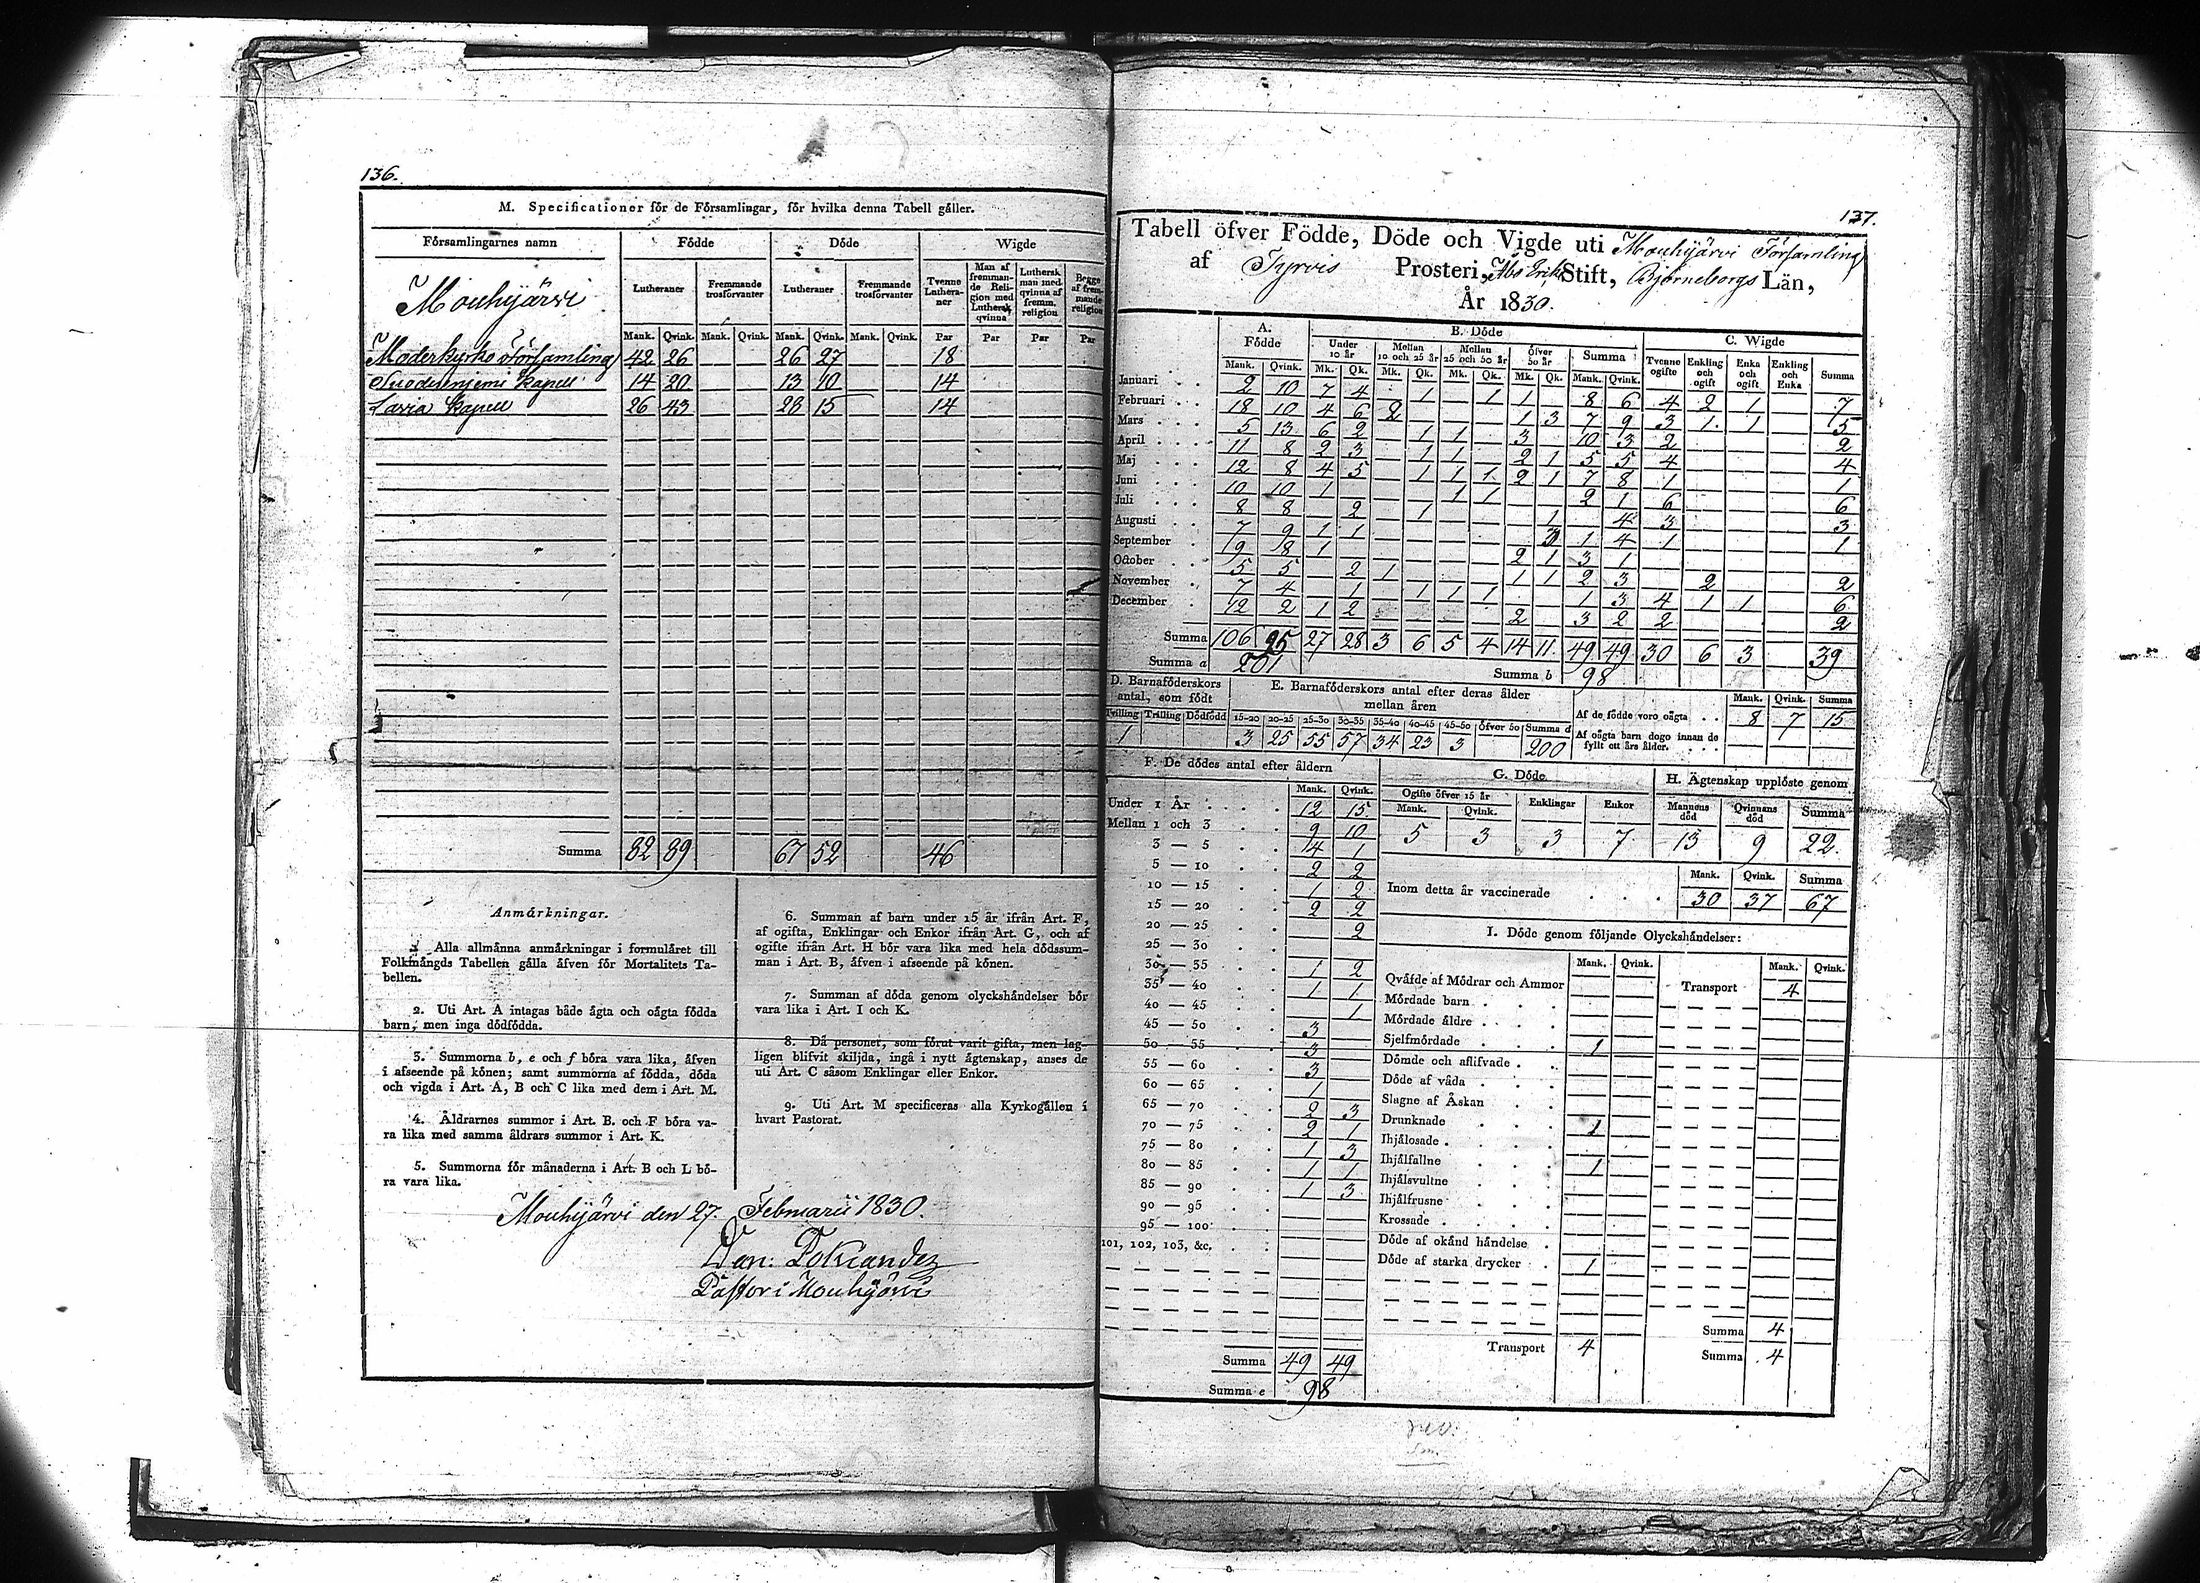 136.
M. Specificationer för de Församlingar, för hvilka denna Tabell gäller.
Församlingarnes namn Födde Döde Wigde
Lutheraner Fremmande trosförvanter Lutheraner Fremmande trosförvanter Tvenne Lutheraner Man af fremmande Religion med Luthersk qvinna Luthersk man med qvinna af fremm. religion Begge af fremmande religion
Mank. Qvink. Mank. Qvink. Mank. Qvink. Mank. Qvink. Par Par Par Par
Mouhijärvi
Moderkyrko Församling 42 26 26 27 18
Suodenniemi Kapell 14 20 13 10 14
Lavia Kapell 26 43 28 15 14
Summa 82 89 67 52 46
Anmärkningar.
1. Alla allmänna anmärkningar i formuläret till
Folkmängds Tabellen gälla äfven för Mortalitets Ta-
bellen.
2. Uti Art. A intagas både ägta och oägta födda
barn, men inga dödfödda.
3. Summorna b, e och f böra vara lika, äfven
i afseende på könen; samt summorna af födda, döda
och vigda i Art. A, B och C lika med dem i Art. M.
4. Åldrarnes summor i Art. B. och F böra va-
ra lika med samma åldrars summor i Art. K.
5. Summorna för månaderna i Art. B och L bö-
ra vara lika.
6. Summan af barn under 15 år ifrån Art. F,
af ogifta, Enklingar och Enkor ifrån Art. G, och af
ogifte ifrån Art. H bör vara lika med hela dödssum-
man i Art. B, äfven i afseende på könen.
7. Summan af döda genom olyckshändelser bör
vara lika i Art. I och K.
8. Då personer, som förut varit gifta, men lag-
ligen blifvit skiljda, ingå i nytt ägtenskap, anses de
uti Art. C såsom Enklingar eller Enkor.
9. Uti Art. M specificeras alla Kyrkogällen i
hvart Pastorat.
Mouhijärvi den 27. Februarii 1830.
Dan:
Pastor i Mouhijärvi
137.
Tabell öfver Födde, Döde och Vigde uti Mouhijärvi Församling
af Tyrvis Prosteri, Åbo Erke Stift, Björneborgs Län,
År 1830.
A. Födde B. Döde C. Wigde
Under 10 år Mellan 10 och 25 år Mellan 25 och 50 år Öfver 50 år Summa Tvenne ogifte Enkling och ogift Enka och ogift Enkling och Enka Summa
Mank. Qvink. Mk. Qk. Mk. Qk. Mk. Qk. Mk. Qk. Mank. Qvink.
Januari 2 10 7 4 1 1 1 8 6 4 2 1 7
Februari 18 10 4 6 2 1 3 7 9 3 1 1 5
Mars 5 13 6 2 1 1 3 10 3 2 2
April 11 8 2 3 1 1 2 1 5 5 4 4
Maj 12 8 4 5 1 1 1 2 1 7 8 1 1
Juni 10 10 1 1 1 2 1 6 6
Juli 8 8 2 1 1 4 3 3
Augusti 7 9 1 1 3 1 4 1 1
September 19 8 1 2 1 3 1
October 5 5 2 1 1 1 2 3 2 2
November 7 4 1 1 1 1 1 3 4 1 1 6
December 12 2 1 2 2 3 2 2 2
Summa 106 95 27 28 3 6 5 4 14 11 49 49 30 6 3 39
Summa a 201 Summa b 98
D. Barnaföderskors antal, som födt
Tvilling Trilling Dödfödd
1
E. Barnaföderskors antal efter deras ålder mellan åren
15-20 20-25 25-30 30-35 35-40 40-45 45-50 Öfver 50 Summa d
3 25 55 57 34 23 3 200
Mank. Qvink. Summa
Af de födde voro oägta 8 7 15
Af oägta barn dogo innan de
fyllt ett års ålder.
F. De dödes antal efter åldern
Mank. Qvink.
Under 1 År 12 15
Mellan 1 och 3 9 10
3 — 5 14 1
5 — 10 2 2
10 — 15 1 2
15 — 20 2 2
20 — 25 2
25 — 30
30 — 35 1 2
35 — 40 1 1
40 — 45 1
45 — 50 3
50 — 55 3
55 — 60 3
60 — 65 1
65 — 70 2 3
70 — 75 2 1
75 — 80 1 3
80 — 85 1 1
85 — 90 1 3
90 — 95
95 — 100
101, 102, 103, &c.
Summa 49 49
Summa e 98
G. Döde
Ogifte öfver 15 år Enklingar Enkor
Mank. Qvink.
5 3 3 7
H. Ägtenskap upplöste genom
Mannens död Qvinnans död Summa
13 9 22
Mank. Qvink. Summa
Inom detta år vaccinerade 30 37 67
I. Döde genom följande Olyckshändelser:
Mank. Qvink. Mank. Qvink.
Qväfde af Mödrar och Ammor Transport 4
Mördade barn
Mördade äldre
Sjelfmördade 1
Dömde och aflifvade
Döde af våda
Slagne af Åskan
Drunknade 1
Ihjälosade
Ihjälfallne 1
Ihjälsvultne
Ihjälfrusne
Krossade
Döde af okänd händelse
Döde af starka drycker 1
Summa 4
Transport 4 Summa 4